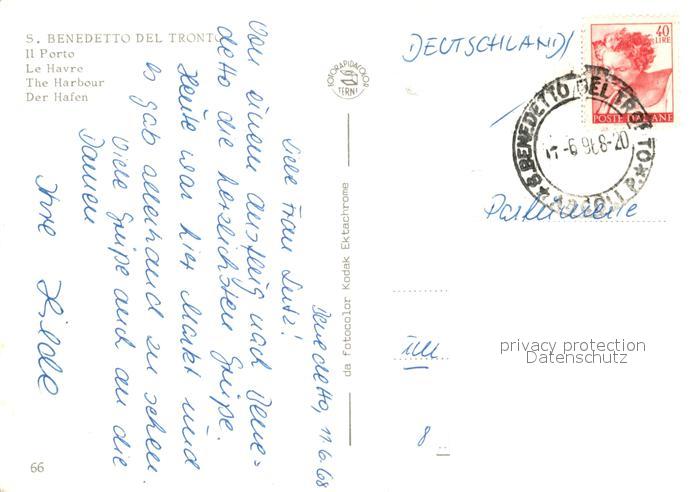 S. BENEDETTO DEL TRONTO
Il Porto
Le Havre
The Harbour
Der Hafen
Benedetto, 11.6.68
Liebe Frau Lutz!
Von einem Ausflug nach Bene-
detto die herzlichsten Grüße.
Heute war hier Markt und
es gab allerhand zu sehen.
Viele Grüße auch an die
Damen
Ihre Hilde
66
FOTORAPIDACOLOR
TERNI
da fotocolor Kodak Ektachrome
DEUTSCHLAND/
40
LIRE
POSTE ITALIANE
S. BENEDETTO DEL TRONTO
-6 968-20
8
privacy protection
Datenschutz